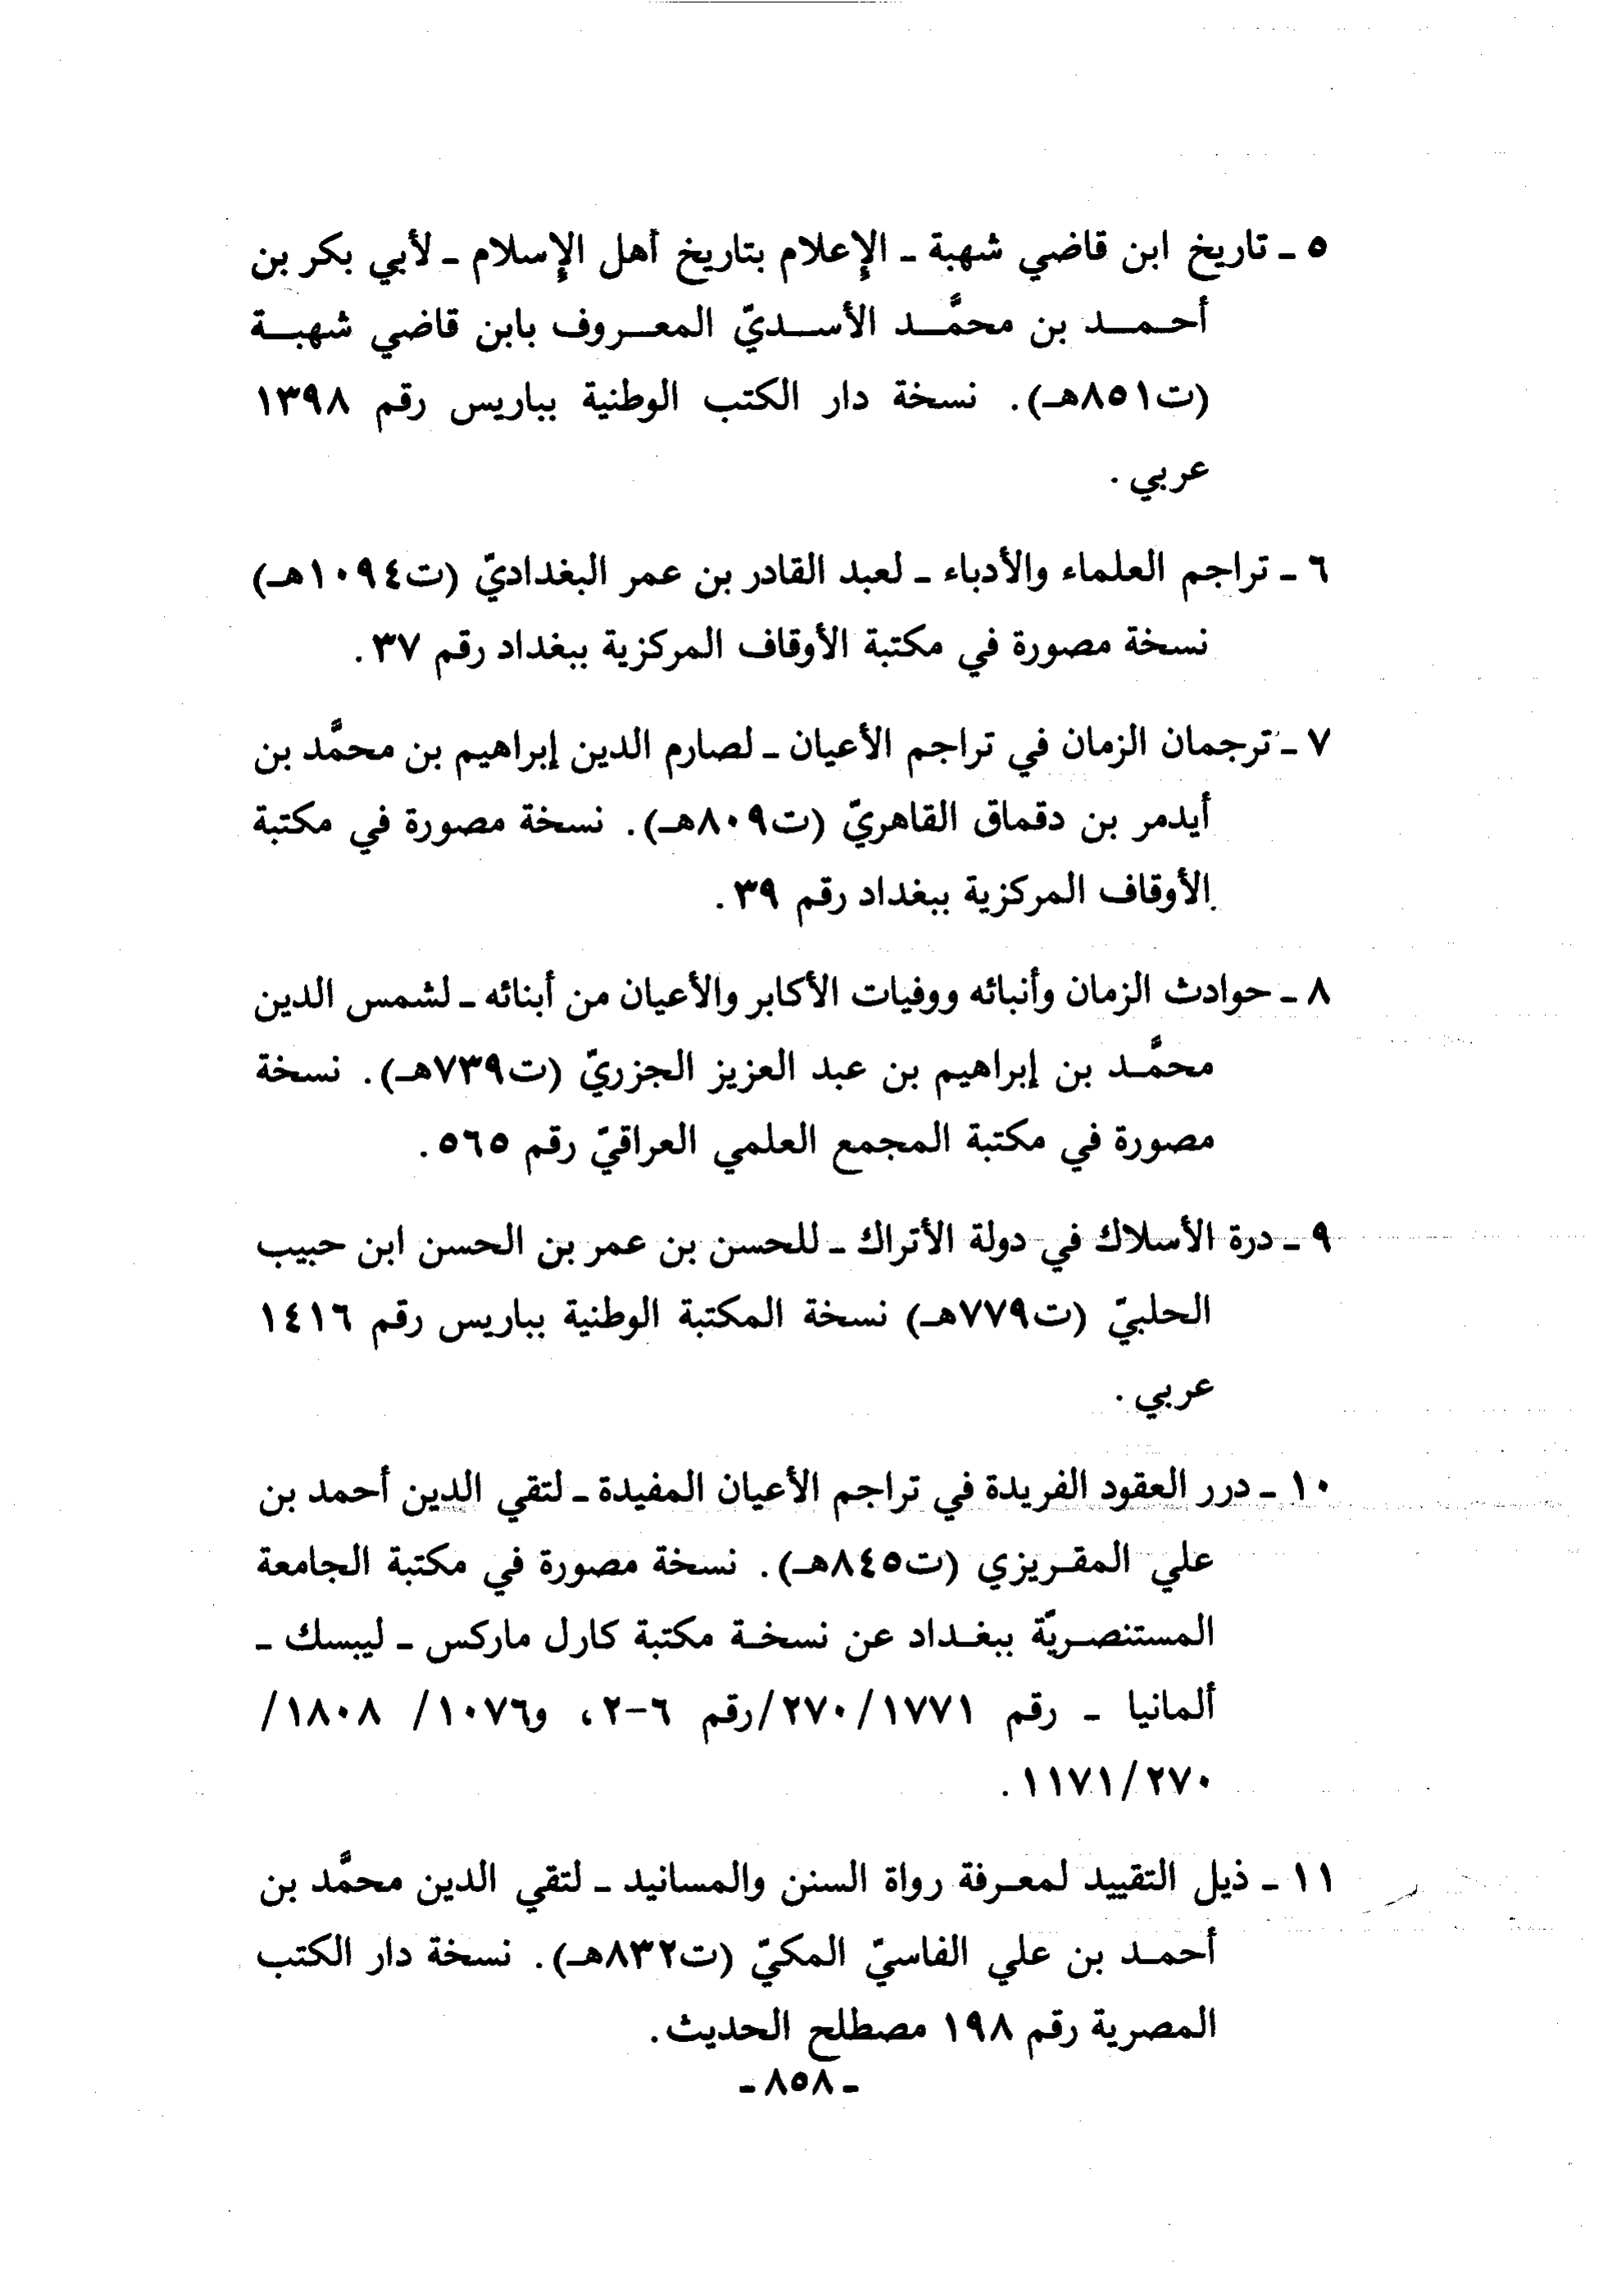 ٥ - تاريخ ابن قاضي شهبة - الإعلام بتاريخ أهل الإسلام - لأبي بكر بن
أحمد بن محمَّد الأسديّ المعروف بابن قاضي شهبة
(ت٨٥١هـ). نسخة دار الكتب الوطنية بباريس رقم ١٣٩٨
عربي.
٦ - تراجم العلماء والأدباء - لعبد القادر بن عمر البغداديّ (ت١٠٩٤هـ)
نسخة مصورة في مكتبة الأوقاف المركزية ببغداد رقم ٣٧.
٧ - ترجمان الزمان في تراجم الأعيان - لصارم الدين إبراهيم بن محمَّد بن
أيدمر بن دقماق القاهريّ (ت٨٠٩هـ). نسخة مصورة في مكتبة
الأوقاف المركزية ببغداد رقم ٣٩.
٨ - حوادث الزمان وأنبائه ووفيات الأكابر والأعيان من أبنائه - لشمس الدين
محمَّد بن إبراهيم بن عبد العزيز الجزريّ (ت٧٣٩هـ). نسخة
مصورة في مكتبة المجمع العلمي العراقيّ رقم ٥٦٥.
٩ - درة الأسلاك في دولة الأتراك - للحسن بن عمر بن الحسن ابن حبيب
الحلبيّ (ت٧٧٩هـ) نسخة المكتبة الوطنية بباريس رقم ١٤١٦
عربي.
١٠ - درر العقود الفريدة في تراجم الأعيان المفيدة - لتقي الدين أحمد بن
علي المقريزي (ت٨٤٥هـ). نسخة مصورة في مكتبة الجامعة
المستنصريّة ببغداد عن نسخة مكتبة كارل ماركس - ليبسك -
ألمانيا - رقم ١٧٧١/٢٧٠/رقم ٦-٢، و١٠٧٦/ ١٨٠٨/
١١٧١/٢٧٠.
١١ - ذيل التقييد لمعرفة رواة السنن والمسانيد - لتقي الدين محمَّد بن
أحمد بن علي الفاسيّ المكيّ (ت٨٣٢هـ). نسخة دار الكتب
المصرية رقم ١٩٨ مصطلح الحديث.
- ٨٥٨ -